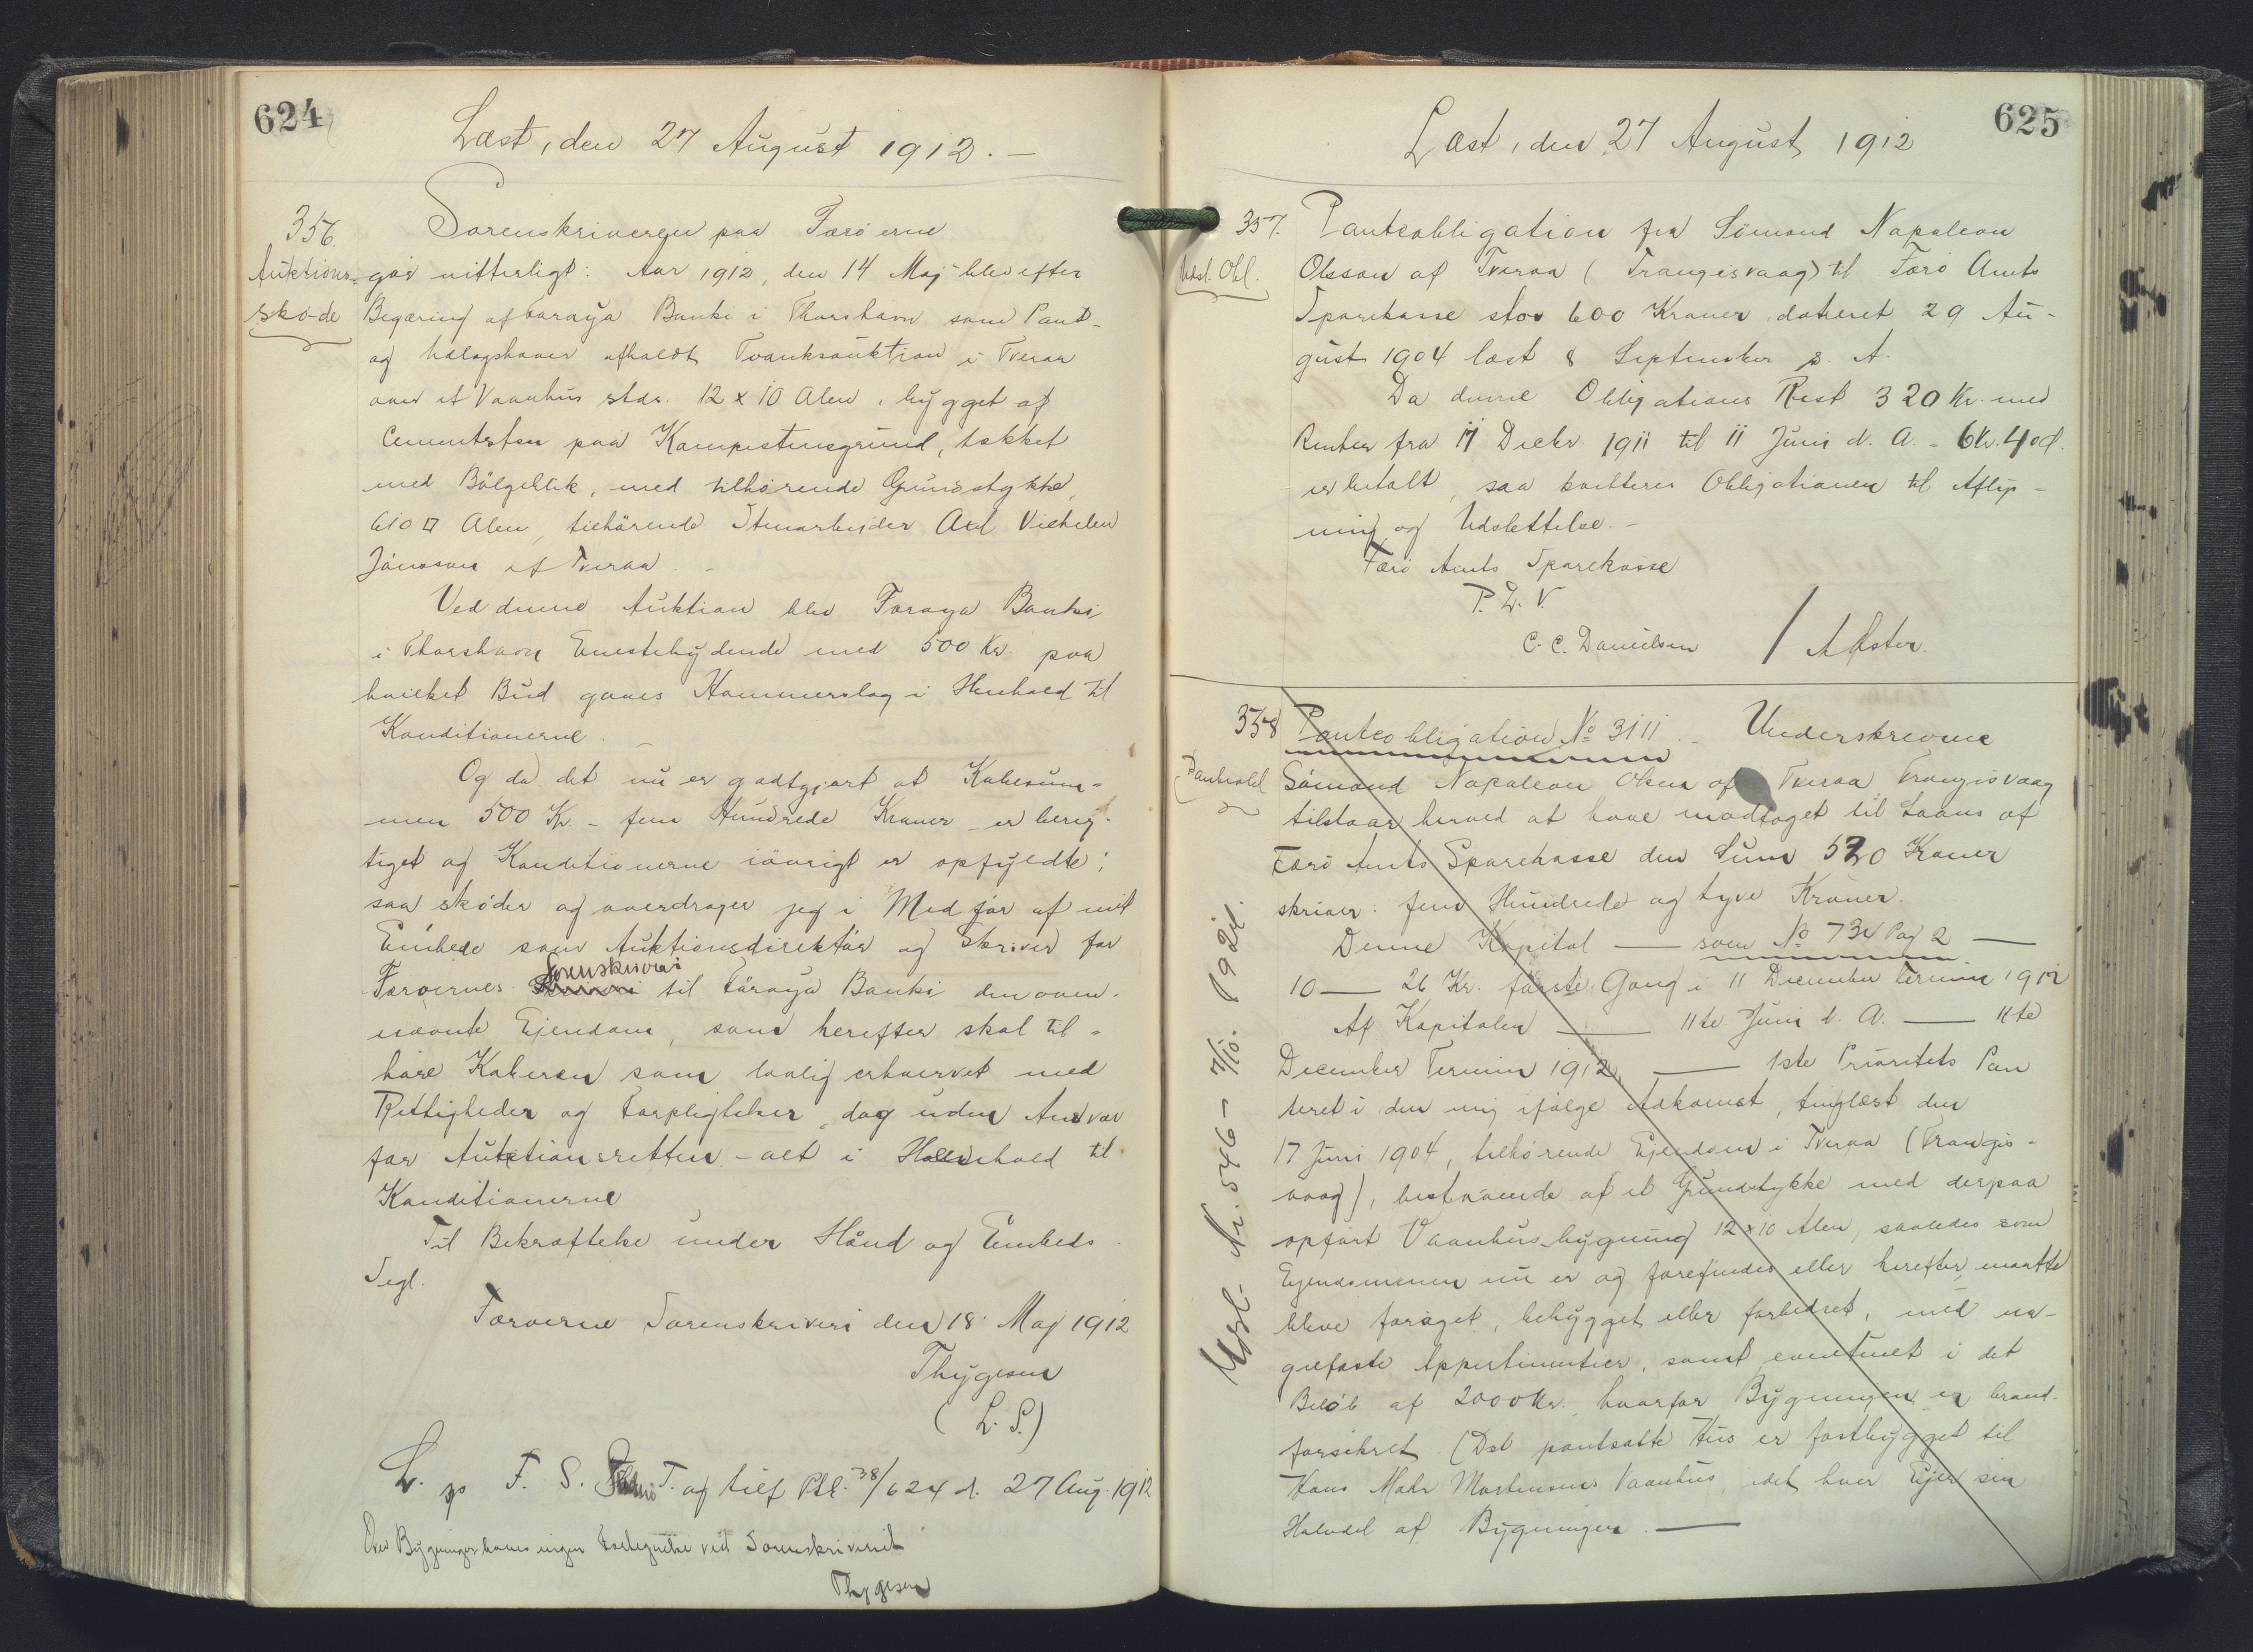 624
Læst, den 27 August 1912. —
356.
Auktions-
sköde
Sorenskriveren paa Færöerne
gör vitterligt: Aar 1912, den 14 Maj blev efter
Begæring af Föroya Banki i Thorshavn som Pant-
og Udlægshaver afholdt Tvanksauktion i Tveraa
over et Vaanhus stdr. 12 x 10 Alen, bygget af
Cementsten paa Kampestensgrund, tækket
med Bölgeblik, med tilhörende Grundstykke,
610 □ Alen, tilhörende Stenarbejder Axel Vilhelm
Jönsson af Tveraa. -
Ved denne Auktion blev Föroya Banki
i Thorshavn Enestebydende med 500 Kr. paa
hvilket Bud gaves Hammerslag i Henhold til
Konditionerne. —
Og da det nu er godtgjort at Købesum-
men 500 Kr. - fem Hundrede Kroner - er berig-
tiget og Konditionerne iövrigt er opfyldte;
saa sköder og overdrager jeg i Medför af mit
Embede som Auktionsdirektör og Skriver for
Færöernes Sorenskriveri til Föroya Banki den oven-
nævnte Ejendom, som herefter skal til-
höre Køberen som lovlig erhvervet med
Rettigheder og Forpligtelser, dog uden Ansvar
for Auktionsretten - alt i Henhold til
Konditionerne
Til Bekræftelse under Hånd og Embeds
Segl.
Færöerne Sorenskriveri den 18 Maj 1912
Thygesen
(L. S.)
L. p F. S. T. og tilf Pbl. 38/624 d. 27 Aug. 1912
Over Bygninger haves ingen Fortegnelse ved Sorenskriveriet
Thygesen
625
Læst, den 27 August 1912
357.
Udsl. Obl.
Panteobligation fra Sömond Napoleon
Olsson af Tveraa (Trangisvaag) til Færö Amts
Sparekasse stor 600 Kroner dateret 29 Au-
gust 1904 læst 8 September s. A.
Da denne Obligations Rest 320 Kr. med
Renter fra 11 Decbr. 1911 til 11 Juni d. A. - 6 Kr. 40 Ø.
er betalt, saa kvitteres Obligationen til Aflys-
ning og Udslettelse. -
Færö Amts Sparekasse
P. L. V.
C. C. Danielsen /
358
Panteobl
Panteobligation No 3111. - Underskrevne
Sömond Napoleon Olsen af Tveraa Trangisvaag
tilstaar herved at have modtaget til Laans af
Færö Amts Sparekasse den Sum 520 Kroner
skriver: fem Hundrede og tyve Kroner.
Denne Kapital — som No 734 Pag 2 —
10 — 26 Kr. förste Gang i 11 December Termin 1912
Af Kapitalen — 11te Juni d. A. — 11te
December Termin 1912, — 1ste Prioritets Pan
teret i den mig ifölge Adkomst, tinglæst den
17 Juni 1904, tilhörende Ejendom i Tveraa (Trangis-
vaag), bestaaende af et Grundstykke med derpaa
opfört Vaanhusbygning 12 x 10 Alen, saaledes som
Ejendommen nu er og forefindes eller herefter maatte
blive foröget, bebygget eller forbedret, med na-
gelfaste Appertinentier, samt eventuelt i det
Belöb af 2000 Kr. hvorfor Bygningen er brand-
forsikret. (Det pantsatte Hus er fastbygget til
Hans Mohr Mortensens Vaanhus, idet hver Ejer sin
Halvdel af Bygningen. —
Udsl. Nr. 546 - 7/10. 1921.